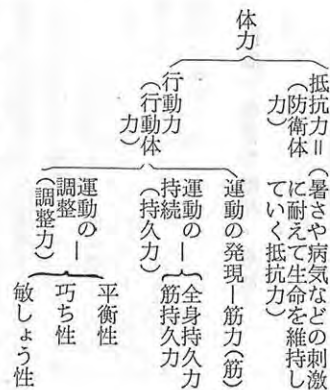 体力
抵抗力＝
(防衛体力)
(暑さや病気などの刺激
に耐えて生命を維持し
ていく抵抗力)
行動力
(行動体力)
運動の発現—筋力(筋)
運動の—
持続
(持久力)
全身持久力
筋持久力
運動の—
調整
(調整力)
平衡性
巧ち性
敏しょう性